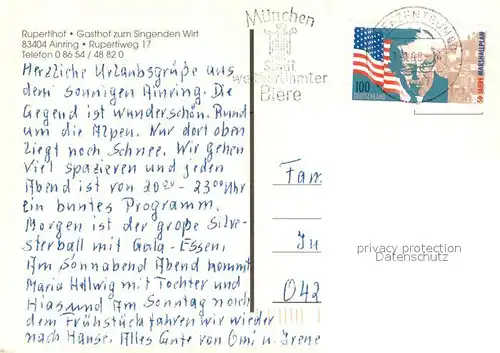 Rupertihof • Gasthof zum Singenden Wirt
83404 Ainring • Rupertiweg 17
Telefon 0 86 54 / 48 82 0
Herzliche Urlaubsgrüße aus
dem sonnigen Ainring. Die
Gegend ist wunderschön. Rund
um die Alpen. Nur dort oben
liegt noch Schnee. Wir gehen
viel spazieren und jeden
Abend ist von 20⁰⁰ - 23⁰⁰ Uhr
ein buntes Programm.
Morgen ist der große Silve-
sterball mit Gala-Essen.
Am Sonnabend Abend kommt
Maria Hellwig mit Tochter und
Hias und Am Sonntag nach
dem Frühstück fahren wir wieder
nach Hause. Alles Gute von Omi u. Irene
München
Stadt
weltberühmter
Biere
BRIEFZENTRUM
100
DEUTSCHLAND
50 JAHRE MARSHALLPLAN
Fam.
In
042
privacy protection
Datenschutz